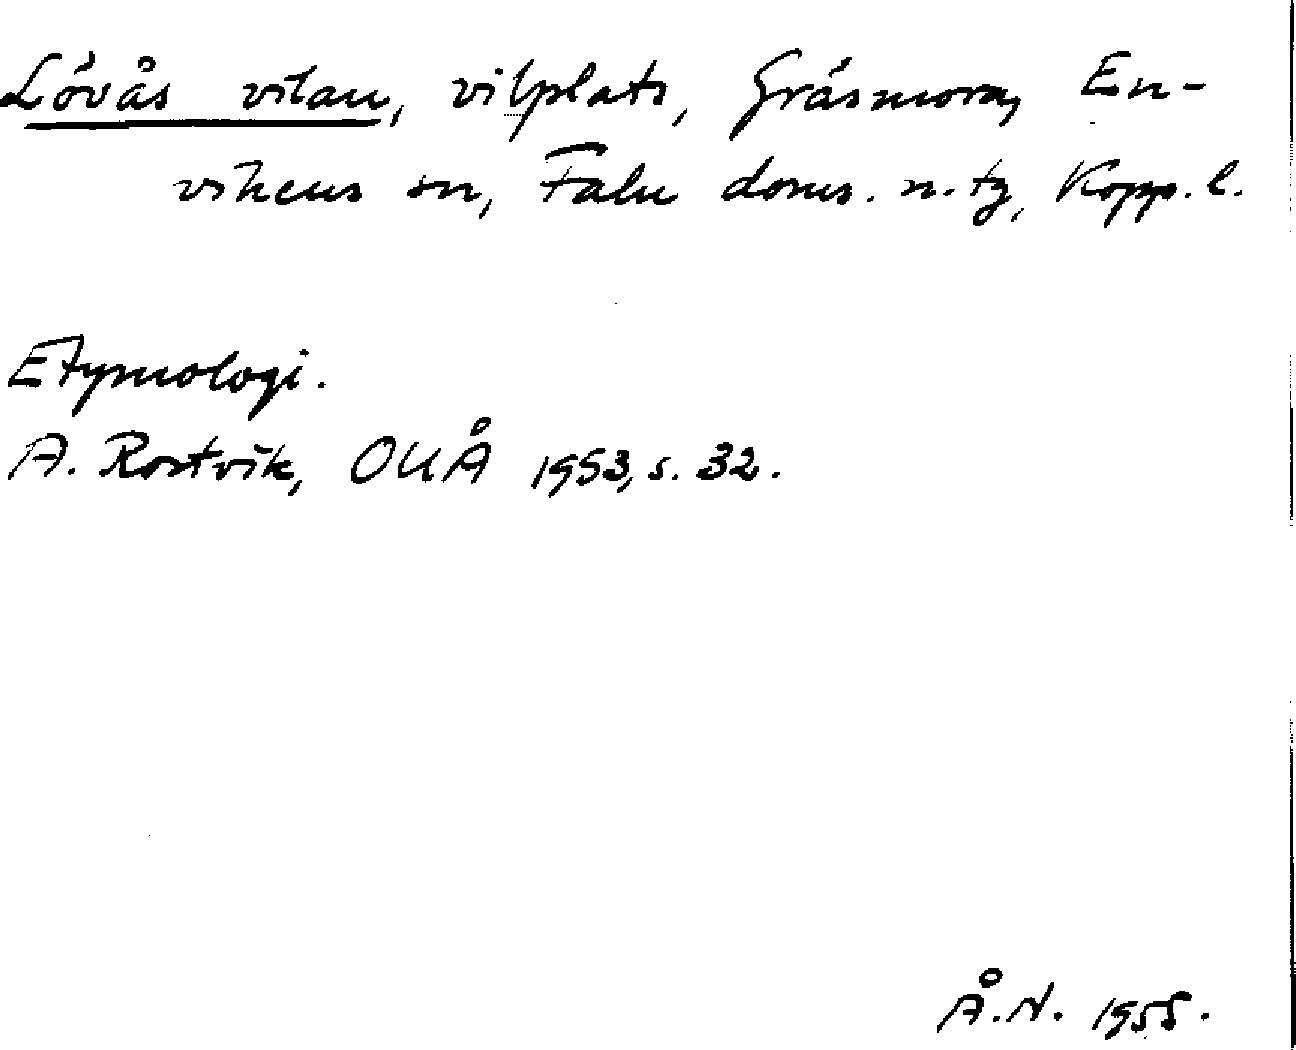 Lövås vilan, vilplats, Gräsmora, En-
vikens sn, Falu doms. n. tg, Kopp. l.
Etymologi.
A. Rostvik, OUÅ 1953, s. 32.
Å.N. 1955.